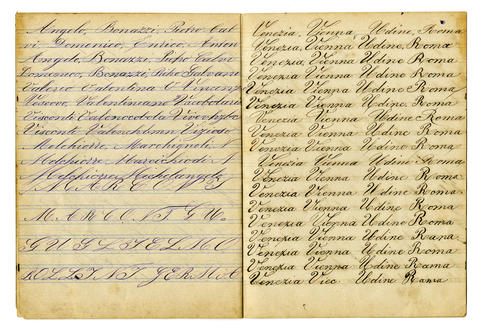 Angelo, Bonazzi, Pietro Cal
vi Domenico, Enrico, Anton
Angelo, Bonazzi, Pietro Calvi
Domenico, Bonazzi, Pietro Galvane
Valerio Valentina C Vincenzo
Vescovo, Valentiniano
Visconti
Visconti
Melchiorre, Marchignoli
Melchiorre
Melchiorre Michelangelo
N M A R C O N I
M A R C O N I G U
G U G L I E L M O
G E R M A
Venezia, Vienna, Udine, Roma
Venezia, Vienna Udine, Roma
Venezia, Vienna Udine Roma
Venezia Vienna Udine Roma
Venezia Vienna Udine Roma
Venezia Vienna Udine Roma
Venezia Vienna Udine, Roma
Venezia Vienna Udine Roma
Venezia Vienna Udine Roma
Venezia Vienna Udine Roma
Venezia Vienna Udine Roma
Venezia Vienna Udine Roma
Venezia Vienna Udine Roma
Venezia Vienna Udine Roma
Venezia Vienna Udine Rana
Venezia Vienna Udine Roma
Venezia Vienna Udine Rama
Venezia Viec Udine Rama